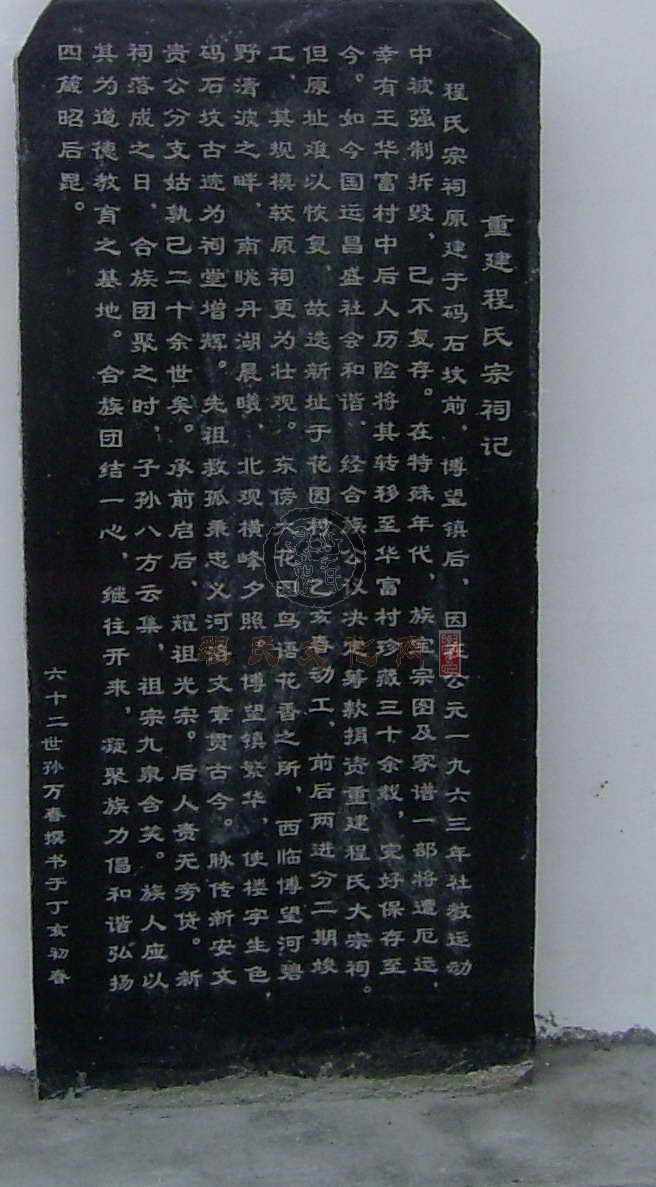 重建程氏宗祠记
程氏宗祠原建于码石坟前，博望镇后，因在公元一九六三年社教运动
中被强制拆毁，已不复存。在特殊年代，族宝宗图及家谱一部将遭厄运，
幸有王华富村中后人历险将其转移至华富村珍藏三十余载，完好保存至
今。如今国运昌盛社会和谐，经合族公议决定筹款捐资重建程氏大宗祠。
但原址难以恢复，故选新址于花园村，乙亥春动工，前后两进分二期竣
工，其规模较原祠更为壮观。东傍大花园鸟语花香之所，西临博望河碧
野清波之畔，南眺丹湖晨曦，北观横峰夕照。博望镇繁华，使楼宇生色，
码石坟古迹为祠堂增辉。先祖救孤秉忠义河洛文章贯古今。脉传新安文
贵公分支姑孰已二十余世矣。承前启后，耀祖光宗。后人责无旁贷。新
祠落成之日，合族团聚之时，子孙八方云集，祖宗九泉含笑。族人应以
其为道德教育之基地。合族团结一心，继往开来，凝聚族力倡和谐弘扬
四箴昭后昆。
六十二世孙万春撰书于丁亥初春
程氏文化网